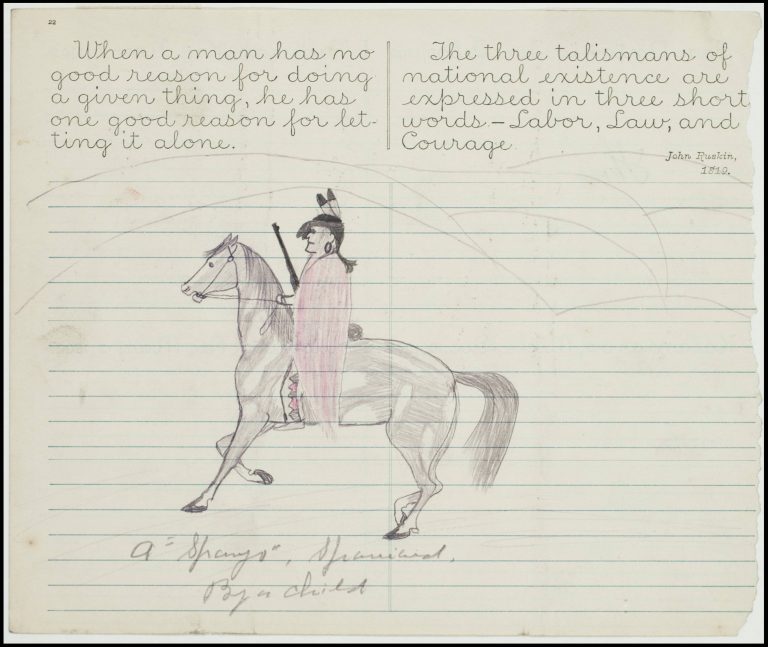 22
When a man has no
good reason for doing
a given thing, he has
one good reason for let-
ting it alone.
The three talismans of
national existence are
expressed in three short
words.—Labor, Law, and
Courage
John Ruskin,
1819.
A "Spanyo", Spaniard.
By a child